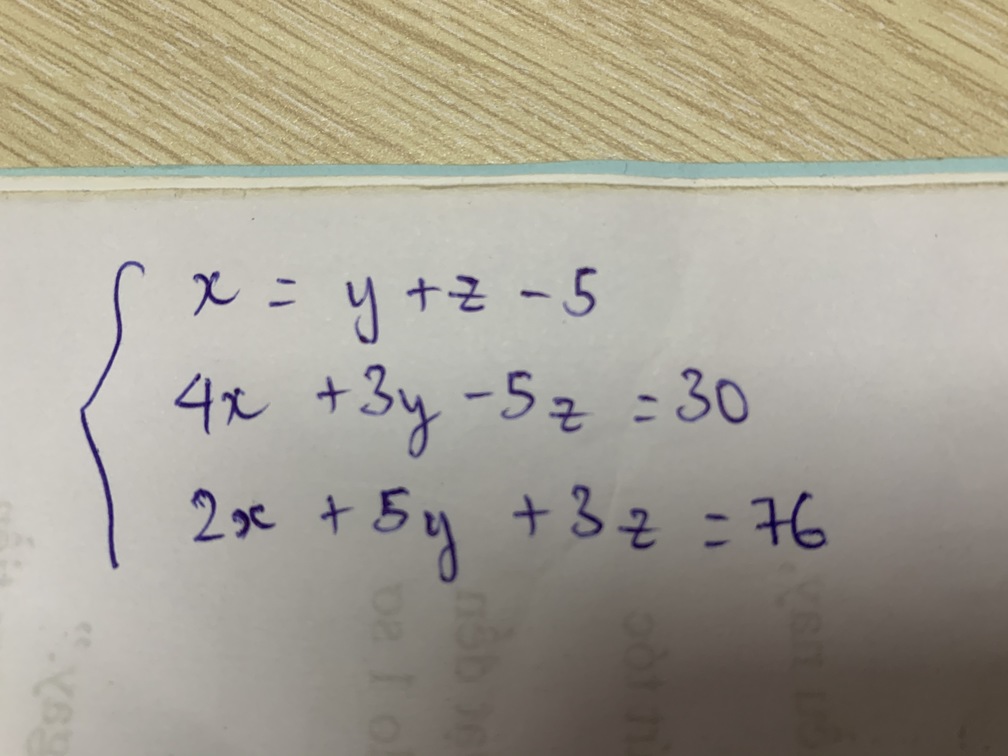 x = y + z - 5
4x + 3y - 5z = 30
2x + 5y + 3z = 76